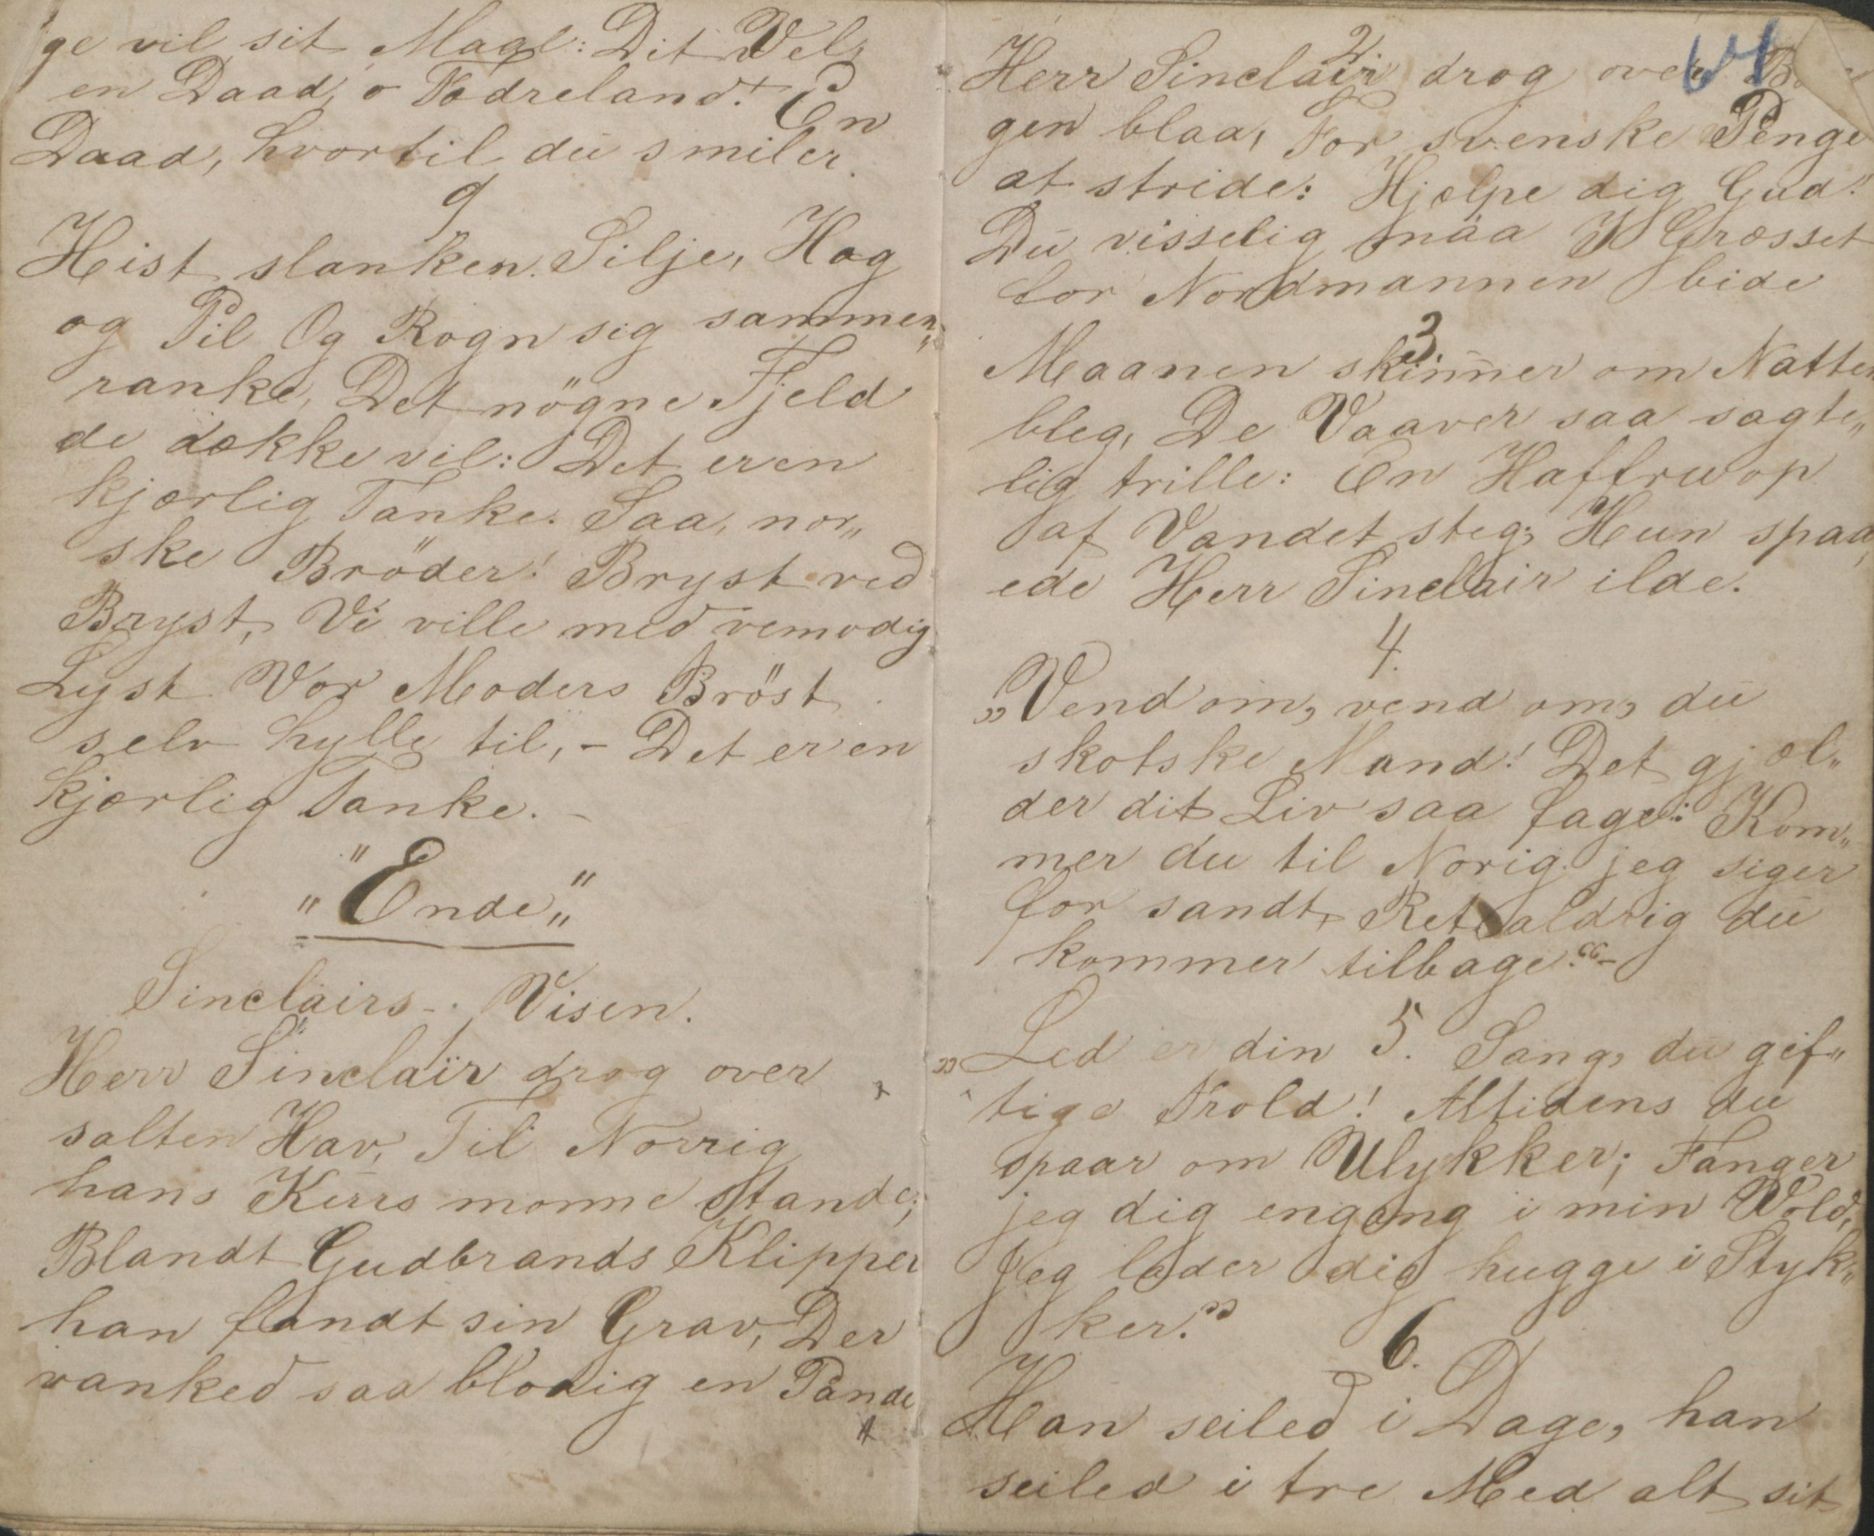 ge vil sit Maal: Dit Vel,
en Daad, o Fædreland! En
Daad, hvortil du smiler.
9
Hist slanken Silje, Hæg
og Pil Og Rogn sig sammen„
ranke, Det nögne Fjeld
de dække vil: Det er en
kjærlig Tanke. Saa, nor„
ske Bröder! Bryst ved
Bryst, Vi ville med vemodig
Lyst Vor Moders Bröst
selv hylle til, – Det er en
kjærlig Tanke. –
"„Ende„"
Sinclairs-Visen.
Herr Sinclair drog over
salten Hav, Til Norrig
hans Kurs monne stande;
Blandt Gudbrands Klipper
han fandt sin Grav, Der
vanked saa blodig en Pande
64
2
Herr Sinclair drog over
gen blaa, For svenske Penge
at stride: Hjælpe dig Gud!
Du visselig maa I Græsset
for Nordmannen bide
3.
Maanen skinner om Natten
bleg, De Vaaver saa sagte„
lig trille: En Haffru op
af Vandet steg; Hun spaa„
ede Herr Sinclair ilde.
4.
„Vend om, vend om, du
skotske Mand! Det gjæl„
der dit Liv saa fage: Kom„
mer du til Norig jeg siger
for sandt, Ret aldrig du
kommer tilbage.“–
5.
„Led er din Sang, du gif„
tige Trold! Altidens du
spaar om Ulykker; Fanger
jeg dig engang i min Vold,
Jeg lader dig hugge i Styk„
ker.”
6.
Han seiled i Dage, han
seiled i tre Med alt sit